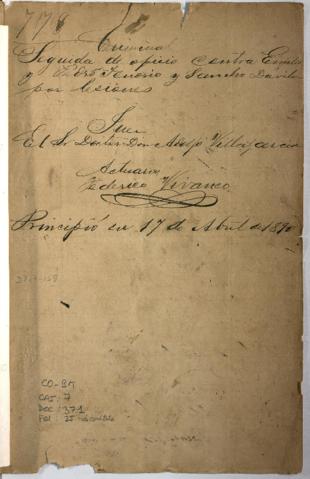 778
Criminal
Seguida de oficio contra
y Tenorio y Sancho Davila
por lesiones
Juez
El Sr Doctor Don Adolfo
Actuario
Federico Vivanco
Principió en 17 de Abril de 1890
CO-BN
CAJ: 7
DOC: 371
FOL: 25